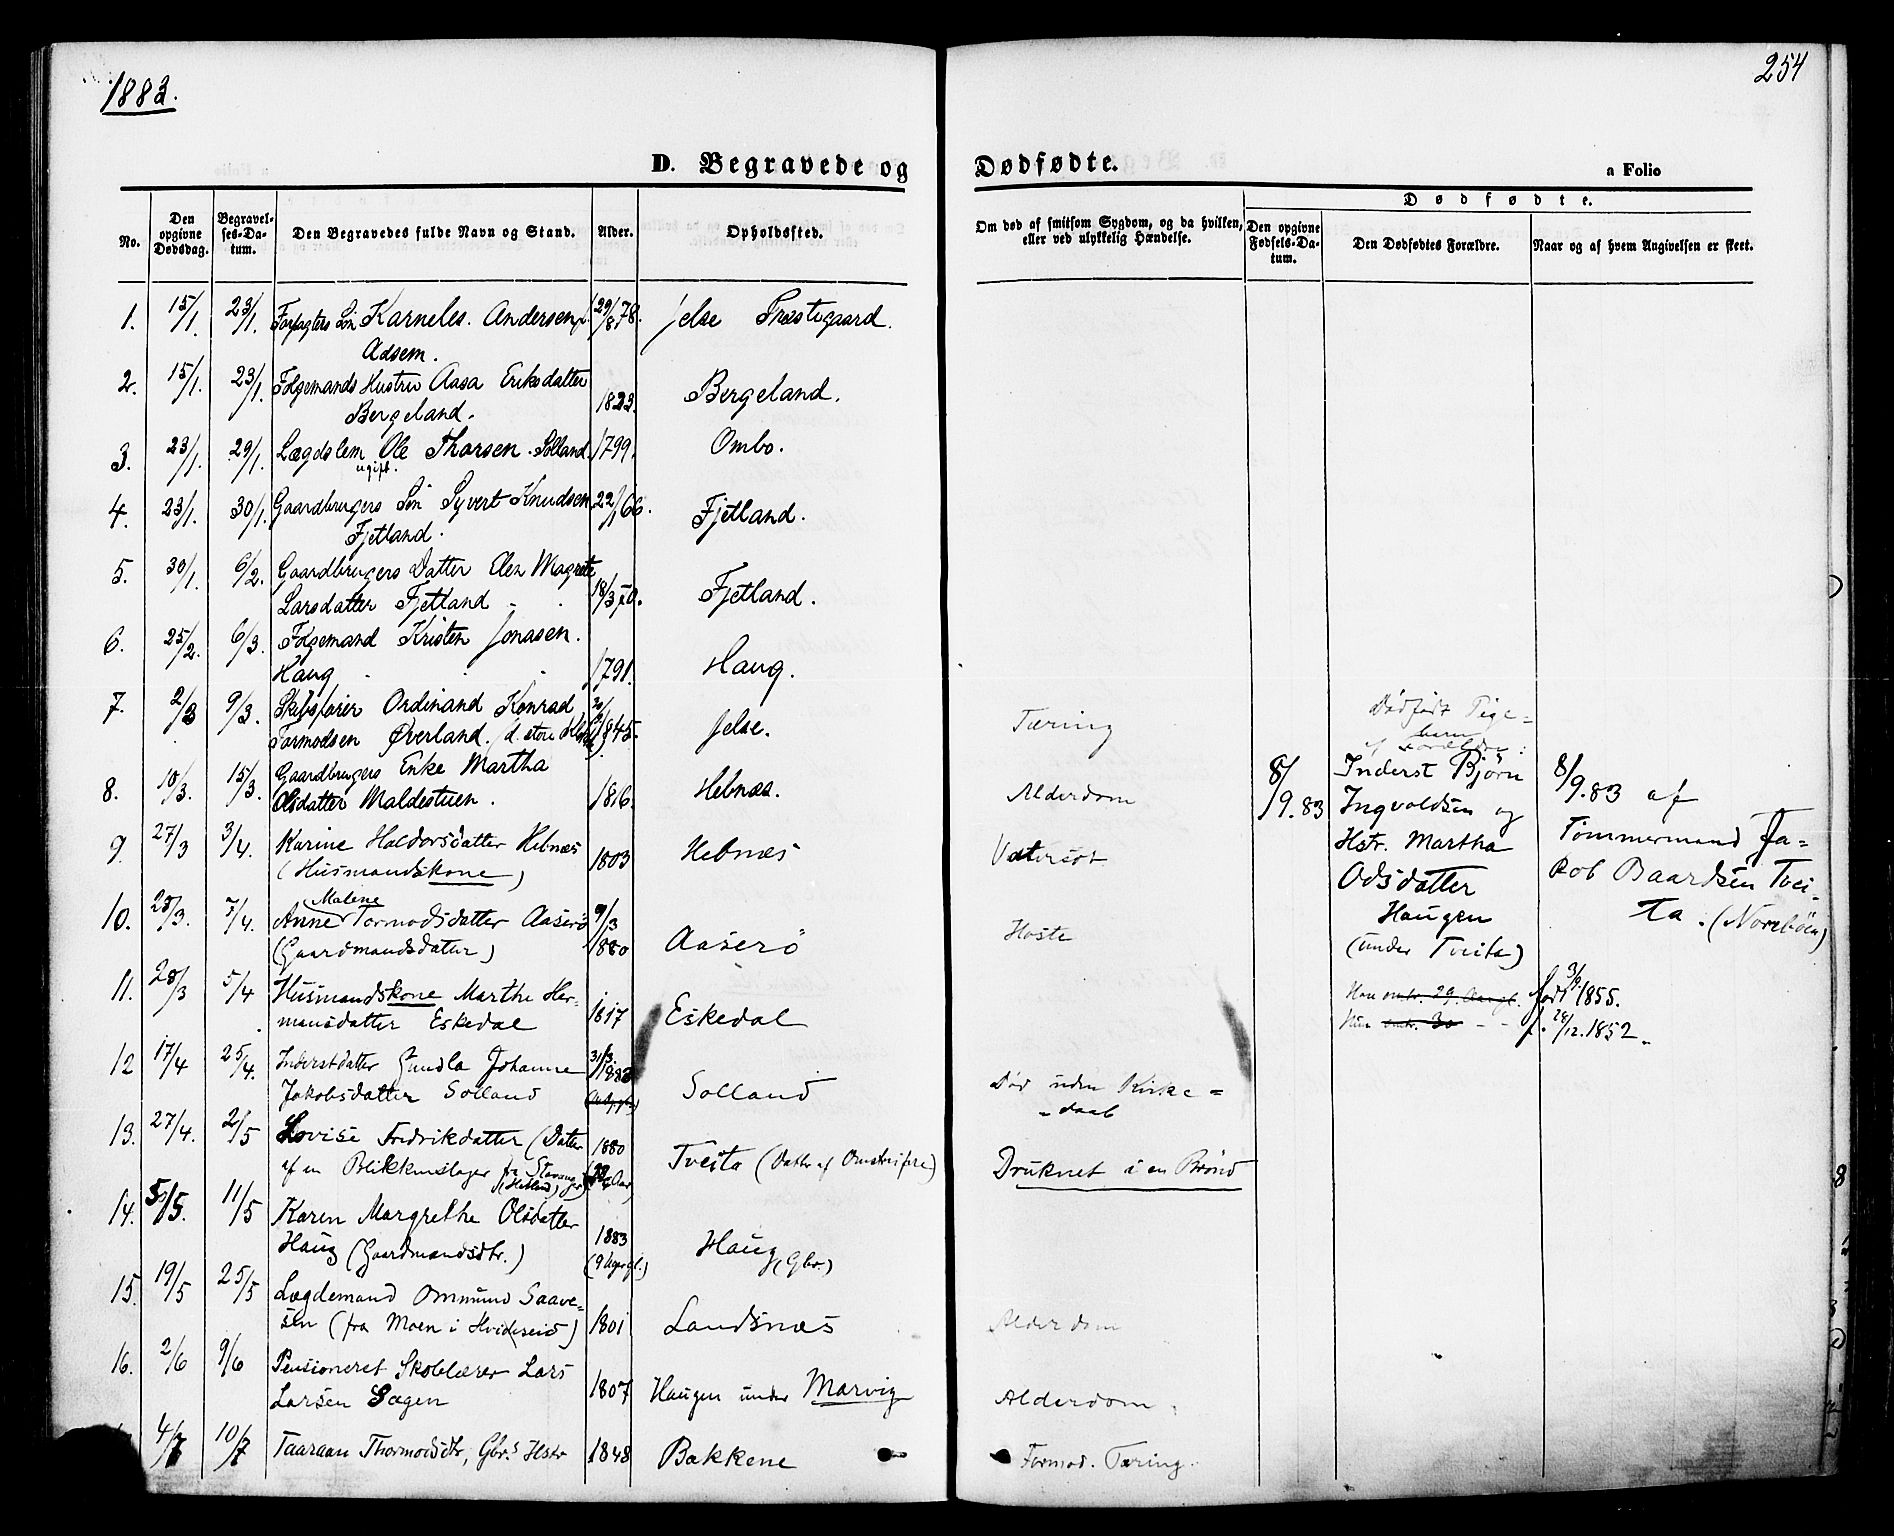 1883.
254
D. Begravede og Dødfødte.
a Folio
No.
Den opgivne Dødsdag.
Begravelses-Datum.
Den Begravedes fulde Navn og Stand.
Alder.
Opholdssted.
Om død af smitsom Sygdom, og da hvilken, eller ved ulykkelig Hændelse.
Dødfødte.
Den opgivne Fødsels-Datum.
Den Dødfødtes Forældre.
Naar og af hvem Angivelsen er skeet.
1. 15/1. 23/1. Forpagters Søn Karneles. Andersen 29/8 78. Jelse Præstegaard.
Adsem.
2. 15/1. 23/1. Folgemands Hustru Aasa Eriksdatter
Bergeland. 1823. Bergeland.
3. 23/1. 29/1. Lægdslem Ole Thorsen. Solland. 1799. Ombo.
ugift.
4. 23/1. 30/1. Gaardbrugers Søn Syvert Knudsen 22/1 66. Fjetland.
Fjetland.
5. 30/1. 6/2. Gaardbrugers Datter Elen Magrete
Larsdatter Fjetland 18/3 70. Fjetland.
6. 25/2. 6/3. Folgemand Kristen Jonasen.
Haug 1791. Haug.
7. 2/3 9/3. Skibsfører Ordinand Konrad
Tormodsen Øverland. 1845. Jelse. Tæring
8. 10/3. 15/3. Gaardbrugers Enke Martha
Olsdatter Maldestuen. 1816. Hebnæs. Alderdom
9. 27/3 3/4. Karine Haldorsdatter Hebnæs
(Husmandskone) 1803 Hebnæs Vatersot
Malene
10. 28/3. 7/4. Anne Tormodsdatter Aaserö 9/3
(Gaardmandsdatter) 1880 Aaserö Hoste
11. 28/3 5/4 Husmandskone Marthe Her-
mansdatter Eskedal 1817 Eskedal
12 17/4 25/4. Inderstdatter Gundla Johanne 31/3
Jakobsdatter Solland Solland Död uden Kirke=
daab
13. 27/4. 2/5 Lovise Fredrikdatter (Datter 1880
af en Blikkenslager fra Stavanger Tveita (Datter af Omstreifere) Druknet i en Brönd
14. 5/5. 11/5 Karen Margrethe Olsdatter
Haug (Gaardmandsdtr.) 1883 Haug (Gbr.)
(9 Uger gl.)
15. 19/5 25/5 Lægdemand Ommund Saave-
sen (fra Moen i Hvideseid) 1801 Landsnæs Alderdom
16. 2/6 9/6 Pensioneret Skolelærer Lars
Larsen Sagen 1807 Haugen under Marvig Alderdom.
4/7 10/7 Taaraan Thormodsdtr, Gbr.s Hstr 1848 Bakkene Formod. Tæring.
Dödfödt Pige=
barn
af Forældre:
8/9.83
Inderst Björn
Ingvoldsen og
Hstr. Martha
Odsdatter
Haugen
(under Tveita)
8/9.83 af
Tömmermand Ja-
kob Baardsen Tvei-
ta. (Norebøen)
Han omtr. 29. Aar gl. født 3/9 1855.
Hun omtr. 30 - - f. 28/12.1852.